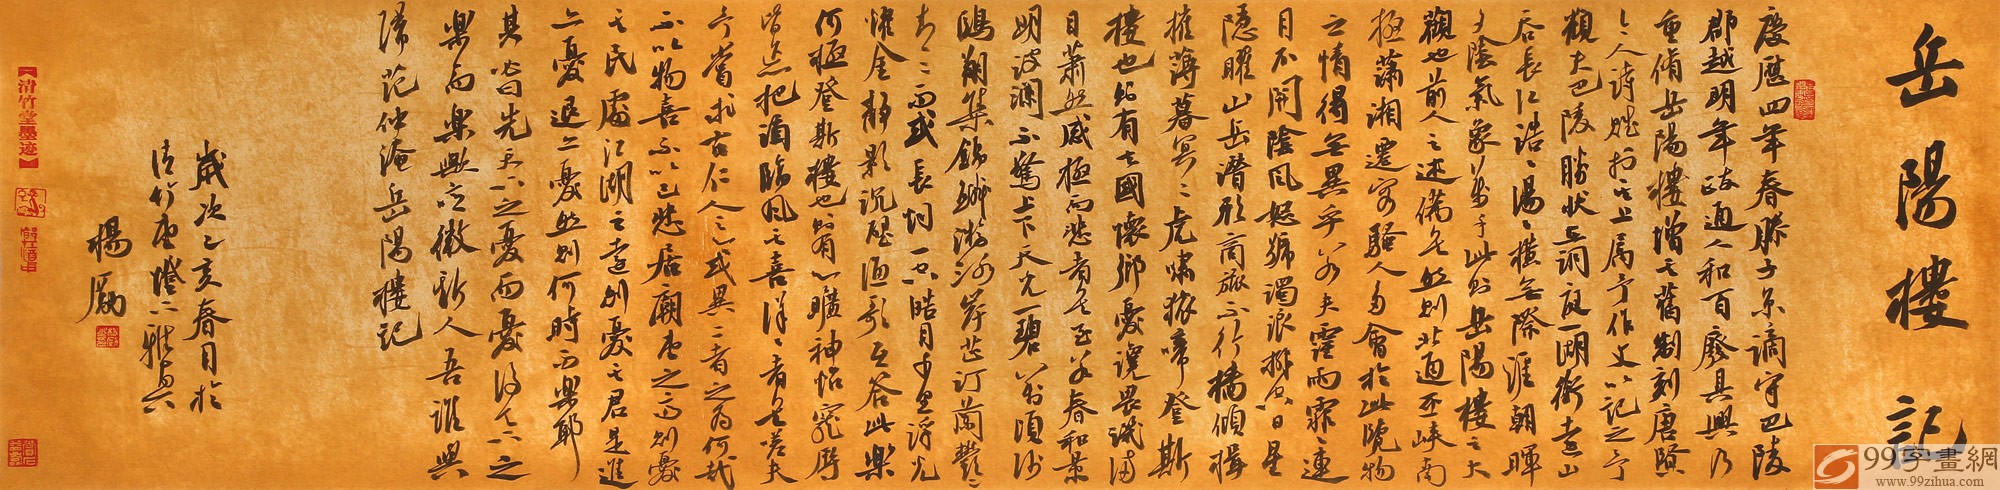 岳陽樓記
慶曆四年春滕子京謫守巴陵
郡越明年政通人和百廢具興乃
重脩岳陽樓增其舊制刻唐賢
今人詩賦於其上属予作文以記之予
觀夫巴陵勝狀在洞庭一湖銜遠山
吞長江浩〻湯〻橫無際涯朝暉
夕陰氣象萬千此則岳陽樓之大
觀也前人之述備矣然則北通巫峽南
極瀟湘遷客騷人多會於此覽物
之情得無異乎若夫霪雨霏〻連
月不開陰風怒號濁浪排空日星
隱曜山岳潛形商旅不行檣傾楫
摧薄暮冥〻虎嘯猿啼登斯
樓也則有去國懷鄉憂讒畏譏滿
目蕭然感極而悲者矣至若春和景
明波瀾不驚上下天光一碧萬頃沙
鷗翔集錦鱗游泳岸芷汀蘭鬱〻
青〻而或長煙一空皓月千里浮光
耀金靜影沉璧漁歌互答此樂
何極登斯樓也則有心曠神怡寵辱
皆忘把酒臨風其喜洋〻者矣嗟夫
予嘗求古仁人之心或異二者之為何哉
不以物喜不以己悲居廟堂之高則憂
其民處江湖之遠則憂其君是進
亦憂退亦憂然則何時而樂耶
其必曰先天下之憂而憂後天下之
樂而樂歟噫微斯人吾誰與
歸范仲淹岳陽樓記
歲次乙亥春月於
清竹堂燈下雅興
楊
【清竹堂墨迹】
99字畫網
www.99zihua.com